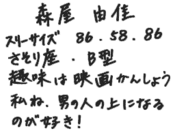 森屋 由佳
スリーサイズ 86.58.86
さそり座.B型
趣味は映画かんしょう
私ね、男の人の上になる
のが好き!